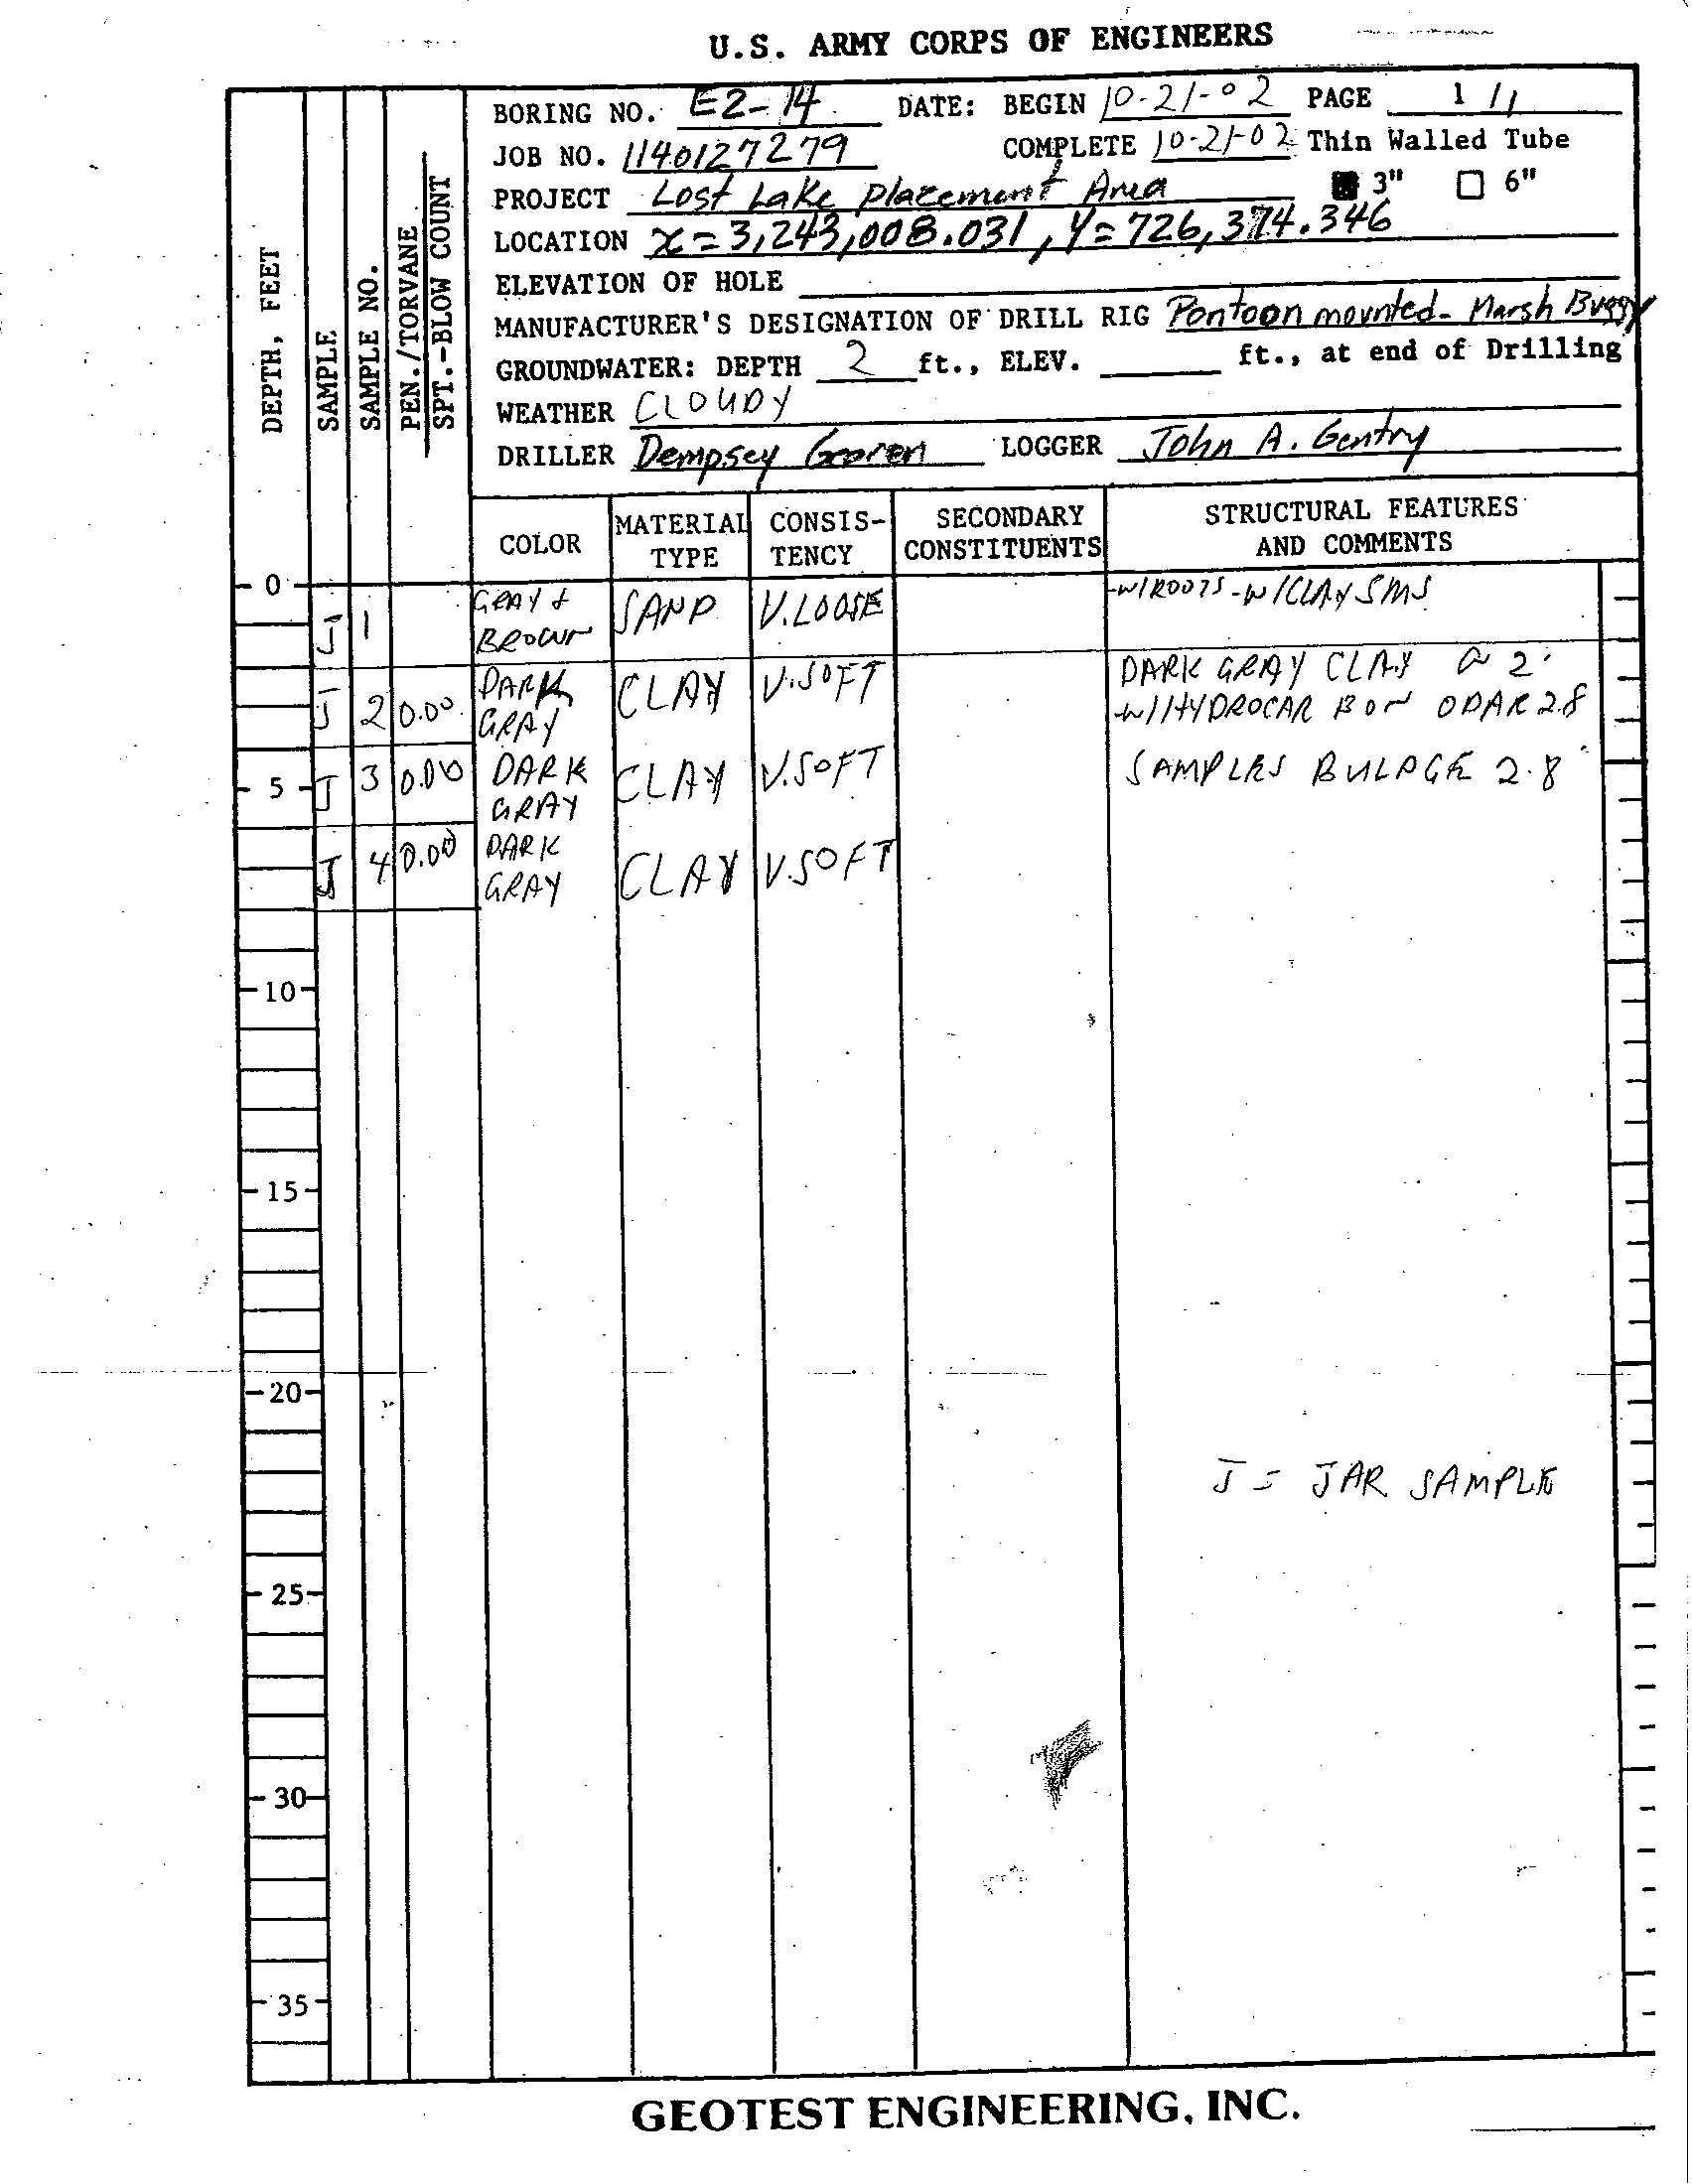 U.S. ARMY CORPS OF ENGINEERS
BORING NO. E2-14 DATE: BEGIN 10-21-02 PAGE 1 / 1
JOB NO. 1140127279 COMPLETE 10-21-02 Thin Walled Tube
PROJECT Lost Lake Placement Area 3" 6"
LOCATION X=3,243,008.031, Y=726,374.346
ELEVATION OF HOLE
MANUFACTURER'S DESIGNATION OF DRILL RIG Pontoon mounted- Marsh Buggy
GROUNDWATER: DEPTH 2 ft., ELEV. ft., at end of Drilling
WEATHER CLOUDY
DRILLER Dempsey LOGGER John A. Gentry
DEPTH, FEET
SAMPLE
SAMPLE NO.
PEN./TORVANE
SPT.-BLOW COUNT
COLOR MATERIAL TYPE CONSIS-TENCY SECONDARY CONSTITUENTS STRUCTURAL FEATURES AND COMMENTS
0
J 1 GRAY & BROWN SAND V.LOOSE -W/ROOTS -W/CLAY SMS
J 2 0.00 DARK GRAY CLAY V.SOFT DARK GRAY CLAY @ 2'
-W/HYDROCARBON ODAR 2.8
5 J 3 0.00 DARK GRAY CLAY V.SOFT SAMPLES BULDGE 2.8'
J 4 0.00 DARK GRAY CLAY V.SOFT
10
15
20
J = JAR SAMPLE
25
30
35
GEOTEST ENGINEERING, INC.